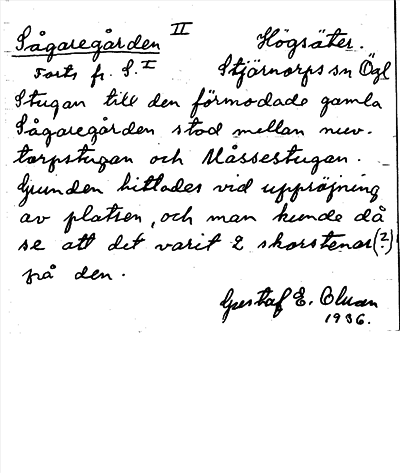 Sågaregården II Högsäter.
Forts fr. S. I Stjärnorps sn Ögl
Stugan till den förmodade gamla
Sågaregården stod mellan nuv.
torpstugan och Måssestugan.
Grunden hittades vid uppröjning
av platsen, och man kunde då
se att det varit 2 skorstenar(?)
på den.
Gustaf E. Olman
1936.